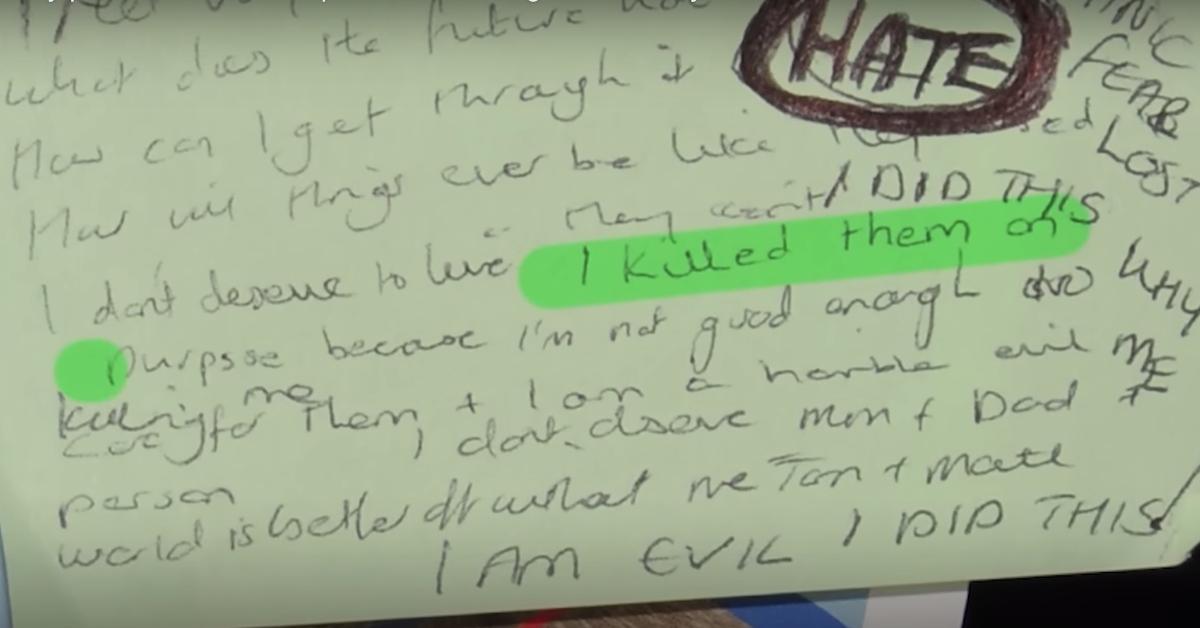 what does the future
HATE
How can I get through it
FEAR
How will things ever be like they used
LOST
they can't I DID THIS
I don't deserve to live I killed them on
purpose because I'm not good enough to
WHY
care for them + I am a horrible evil
ME
killing me
I don't deserve mum + Dad +
person
world is better off without me Tom + Matt
I AM EVIL I DID THIS